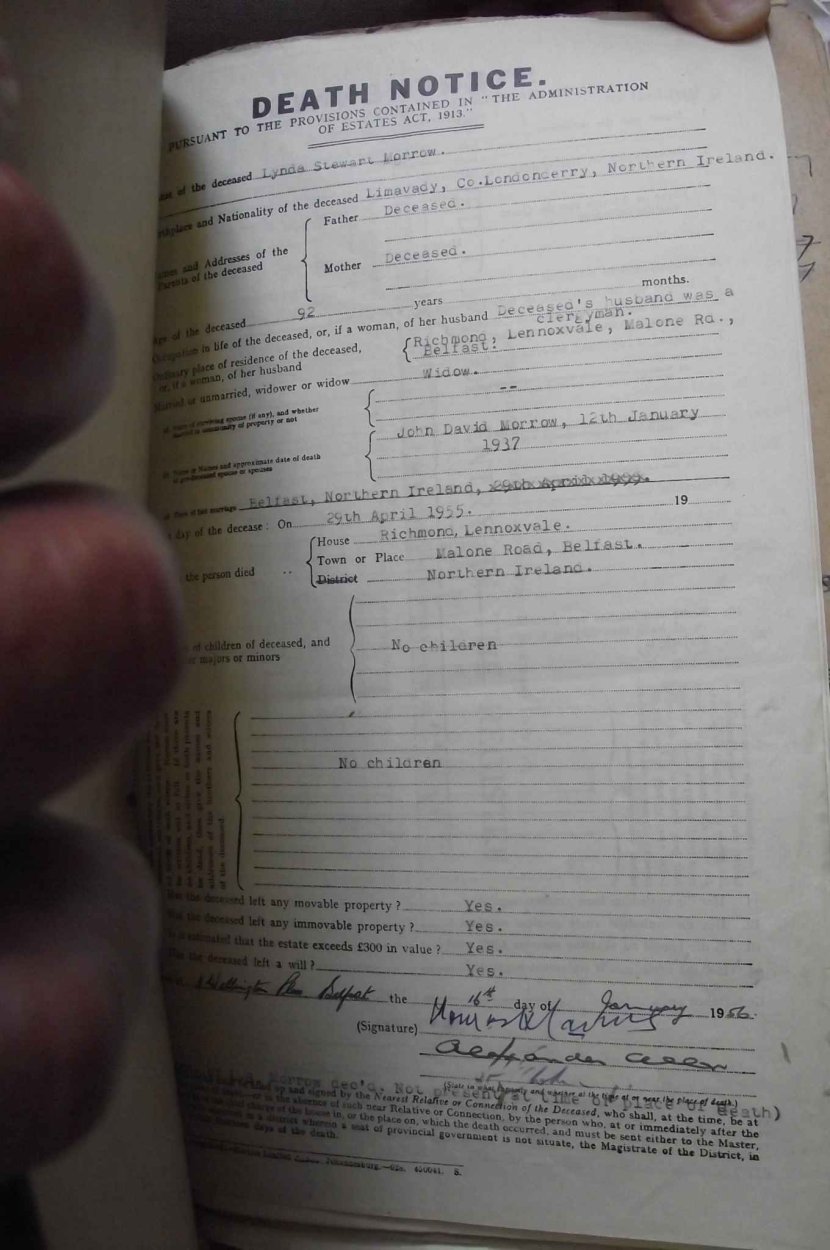 DEATH NOTICE.
PURSUANT TO THE PROVISIONS CONTAINED IN "THE ADMINISTRATION
OF ESTATES ACT, 1913."
of the deceased Lynda Stewart Morrow.
and Nationality of the deceased Limavady, Co.Londonderry, Northern Ireland.
Names and Addresses of the
Parents of the deceased
Father Deceased.
Mother Deceased.
Age of the deceased 92 years months.
Occupation in life of the deceased, or, if a woman, of her husband Deceased's husband was a
clergyman.
Ordinary place of residence of the deceased,
or, if a woman, of her husband
Richmond, Lennoxvale, Malone Rd.,
Belfast.
Married or unmarried, widower or widow Widow.
of surviving spouse (if any), and whether
married in community of property or not
--
Name or Names and approximate date of death
of predeceased spouse or spouses
John David Morrow, 12th January
1937
Place of last marriage Belfast, Northern Ireland,
day of the decease: On 29th April 1955. 19
the person died
House Richmond, Lennoxvale.
Town or Place Malone Road, Belfast.
District Northern Ireland.
of children of deceased, and
majors or minors
No children
No children
Has the deceased left any movable property? Yes.
Has the deceased left any immovable property? Yes.
Is it estimated that the estate exceeds £300 in value? Yes.
Has the deceased left a will? Yes.
Wellington Place Belfast the 16th day of January 1956.
(Signature)
Morrow dec'd. Not present at time or place of death)
and signed by the Nearest Relative or Connection of the Deceased, who shall, at the time, be at
in the absence of such near Relative or Connection, by the person who, at or immediately after the
charge of the house in, or the place on, which the death occurred, and must be sent either to the Master,
in a district wherein a seat of provincial government is not situate, the Magistrate of the District, in
days of the death.
Johannesburg.